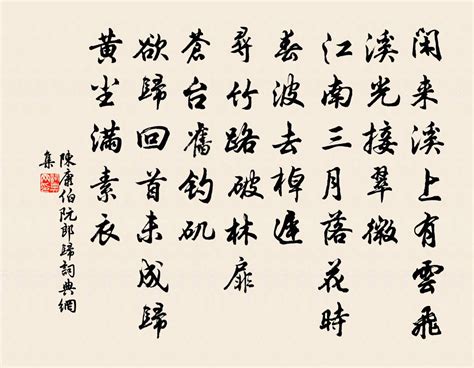 閑来溪上有雲飛
溪光接翠微
江南三月落花時
春波去棹遲
尋竹路破林扉
蒼台舊釣矶
欲歸回首未成歸
黄尘滿素衣
陳康伯阮郎歸詞典網
集